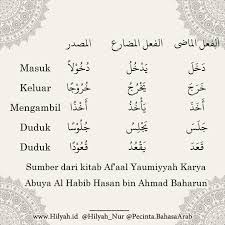 الفعل الماضى الفعل المضارع المصدر
Masuk دَخَلَ يَدْخُلُ دُخُوْلًا
Keluar خَرَجَ يَخْرُجُ خُرُوْجًا
Mengambil أَخَذَ يَأْخُذُ أَخْذًا
Duduk جَلَسَ يَجْلِسُ جُلُوْسًا
Duduk قَعَدَ يَقْعُدُ قُعُوْدًا
Sumber dari kitab Af'aal Yaumiyyah Karya
Abuya Al Habib Hasan bin Ahmad Baharun
www.Hilyah.id @Hilyah_Nur @Pecinta.BahasaArab